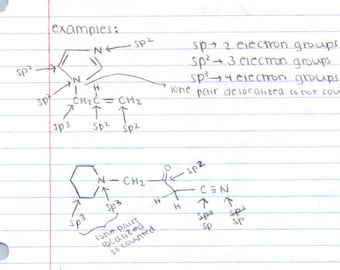 examples:
N sp²
sp → 2 electron groups
sp² → 3 electron groups
sp² N
sp³ → 4 electron groups
sp² H
lone pair delocalized is not cou
CH₂C = CH₂
sp³ sp² sp²
O sp²
N CH₂ C ≡ N
H H
sp³ sp³ sp² sp³
sp sp
lone pair
localized
so counted